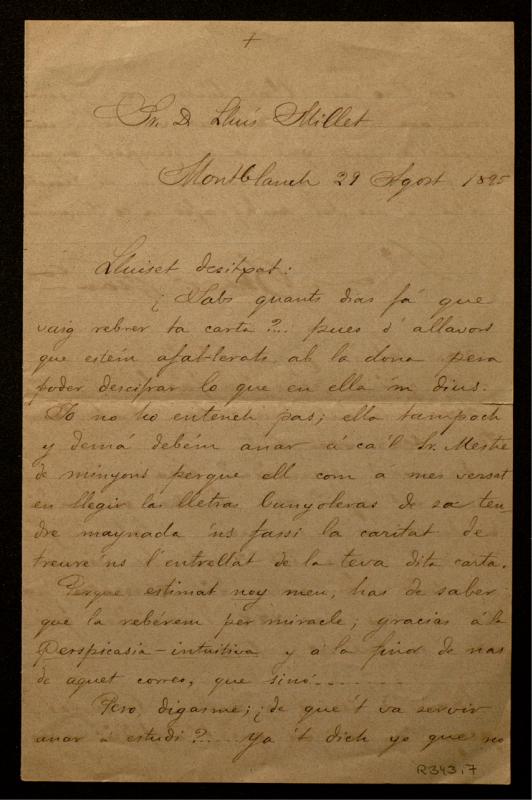 +
Sr. D Lluís Millet
Montblanch 29 Agost 1895
Lluiset desitxat:
¿Sabs quants dias fá que
vaig rebrer ta carta?... pues d'allavors
que estém afatlerats ab la dona pera
poder descifrar lo que en ella 'm dius.
Jo no ho entench pas; ella tampoch
y demá debém anar á ca'l Sr. Mestre
de minyons perque ell com á mes versat
en llegir las lletras bunyoleras de sa ten-
dre maynada 'ns fassi la caritat de
treure'ns l'entrellat de la teva dita carta.
Perque estimat noy meu, has de saber
que la rebérem per miracle; gracias á la
Perspicasia-intuitiva y á la finor de nas
de aquet correo, que sinó........
Pero, digasme; ¿de que 't va servir
anar á estudi?.... ya 't dich yo que no
R343.7